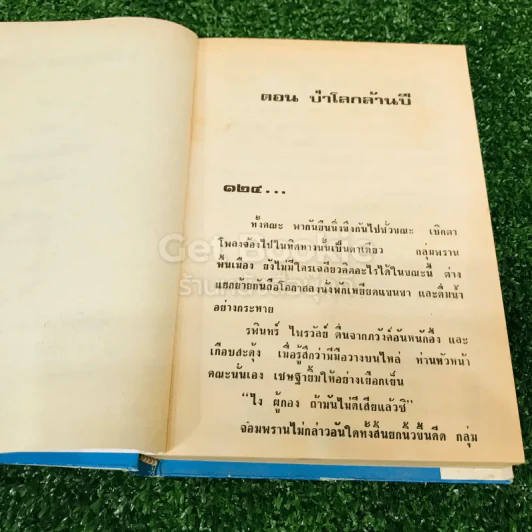 ตอน ป่าโลกล้านปี
๑๒๔...
ทั้งคณะ พากันยืนนิ่งขึงกันไปชั่วขณะ เบิกตา
โพลงจ้องไปในทิศทางนั้นเป็นตาเดียว กลุ่มพราน
พื้นเมือง ยังไม่มีใครเฉลียวคิดอะไรได้ในขณะนี้ ต่าง
แยกย้ายกันถือโอกาสลงนั่งพักเหยียดแขนขา และดื่มน้ำ
อย่างกระหาย
รพินทร์ ไพรวัลย์ ตื่นจากภวังค์อันหนักอึ้ง และ
เกือบสะดุ้ง เมื่อรู้สึกว่ามีมือวางบนไหล่ ท่านหัวหน้า
คณะนั่นเอง เชษฐายิ้มให้อย่างเยือกเย็น
“ไง ผู้กอง ถ้ามันไม่ดีเสียแล้วซิ”
จอมพรานไม่กล่าวอันใดทั้งสิ้นยกนิ้วขึ้นดีด กลุ่ม
Get Bookie